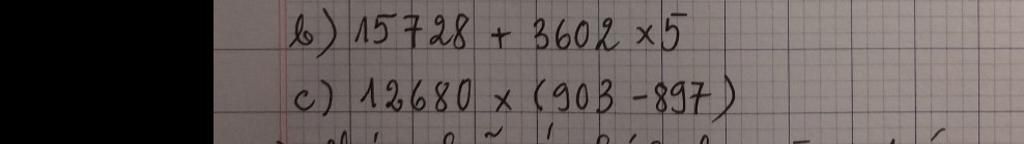 b) 15728 + 3602 x 5
c) 12680 x (903 - 897)